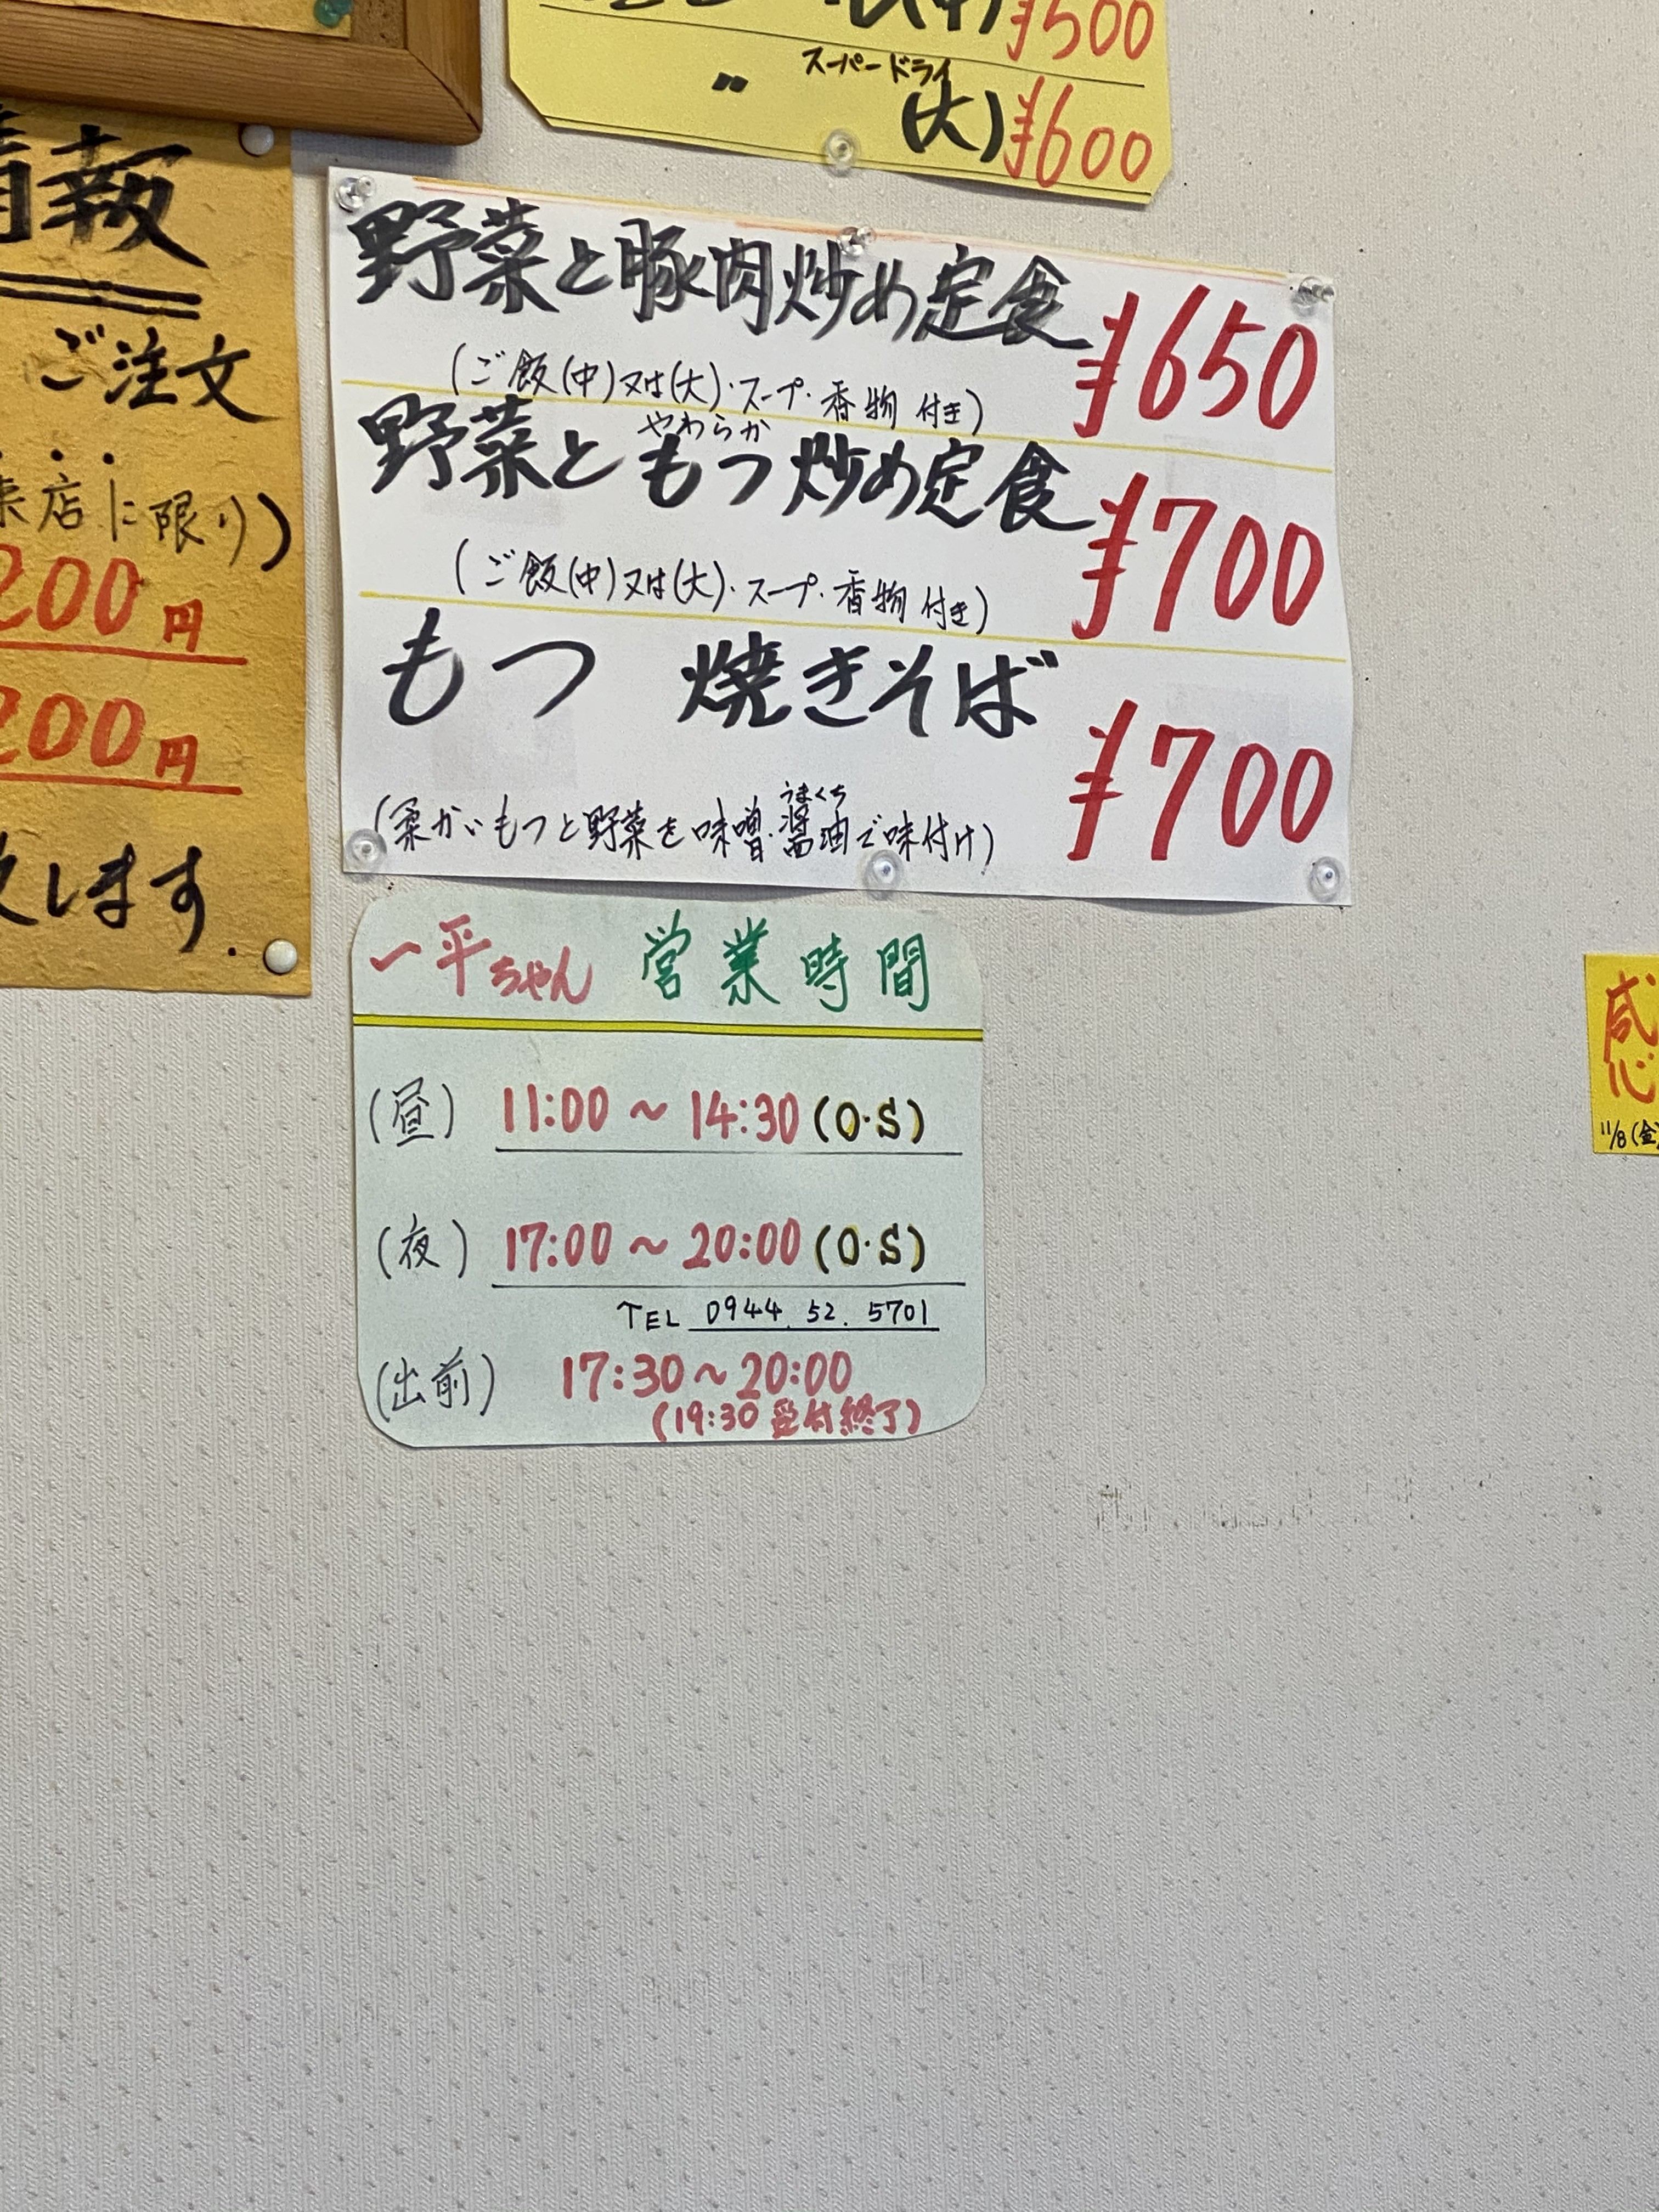 (中) ¥500
スーパードライ
〃 (大) ¥600
情報
ご注文
来店に限り)
200円
200円
致します.
野菜と豚肉炒め定食 ¥650
(ご飯(中)又は(大)・スープ・香物 付き)
やわらか
野菜ともつ炒め定食 ¥700
(ご飯(中)又は(大)・スープ・香物 付き)
もつ 焼きそば ¥700
うまくち
(柔かいもつと野菜を味噌・醤油で味付け)
一平ちゃん 営業時間
(昼) 11:00 ~ 14:30 (O・S)
(夜) 17:00 ~ 20:00 (O・S)
TEL 0944. 52. 5701
(出前) 17:30 ~ 20:00
(19:30 受付終了)
感
11/8(金)